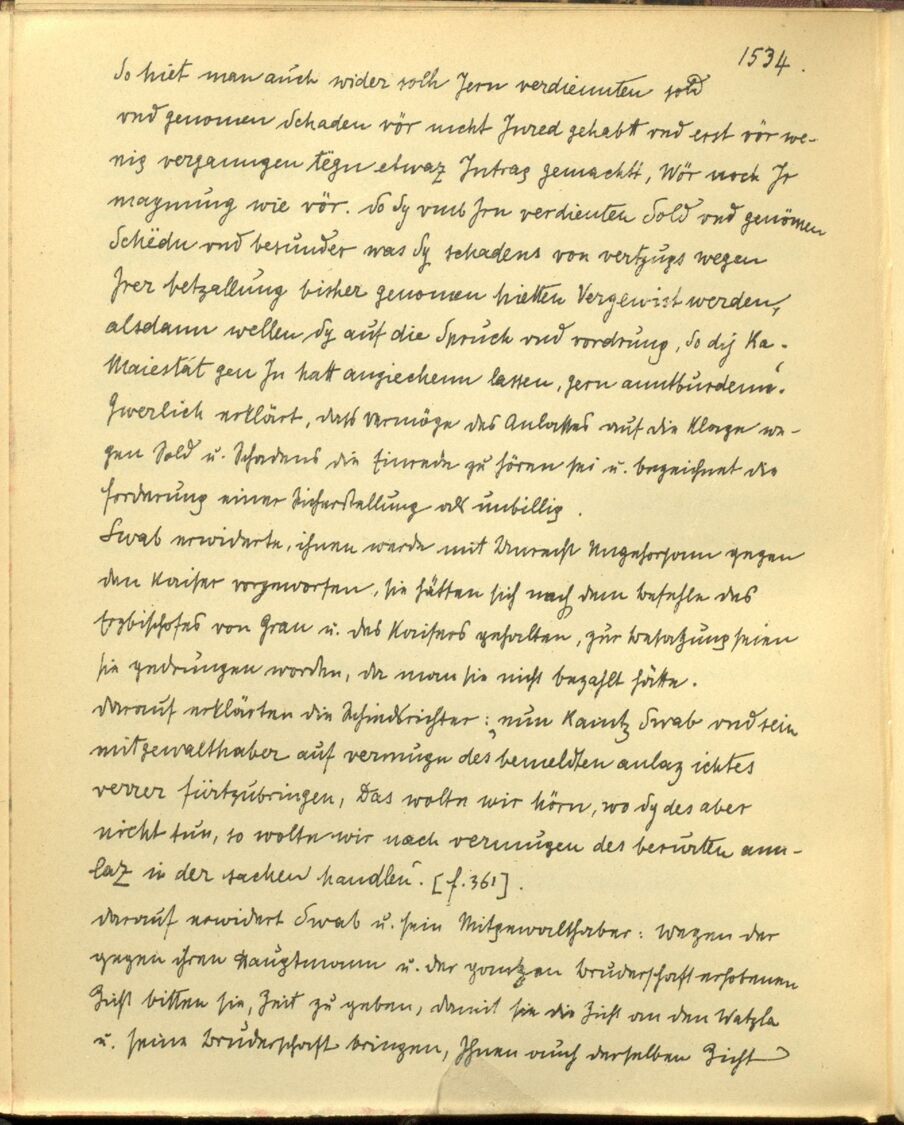 1534.
So hiet man auch wider solh Jern verdiennten sold
vnd genomen Schaden vör nicht Jnred gehabtt vnd erst vör we-
nig vergannngen tëgn etwaz Jntrag gemachtt, Wör noch Jr
maynung wie vör. So Sy vmb Jrn verdienten Sold vnd genömen
Schëdn vnd besunder was Sy schadens von vertzugs wegen
Jrer betzallung bisher genomen hietten Vergewist werden,
alsdann wellen Sy auf die Spruch vnd vordrung, So dij Ka.
Maiestät gen Jn hatt anziechenn lassen, gern anntburdenn'.
Gwerlich erklärt, dass Vermöge des Anlasses auf die Klage we-
gen Sold u. Schadens die Einrede zu hören sei u. bezeichnet die
forderung einer Sicherstellung als unbillig.
Swab erwiderte, ihnen werde mit Unrecht Ungehorsam gegen
den Kaiser vorgeworfen, sie hätten sich nach dem Befehle des
Erzbischofes von Gran u. des Kaisers gehalten, zur Besatzung seien
sie gedrungen worden, da man sie nicht bezahlt hätte.
darauf erklärten die Schiedsrichter: „nun Kaintz Swab vnd sein
mitgewalthaber auf vermugn des bemeldten anlaz ichtes
verrer fürtzubringen, Das woltn wir hörn, wo Sy des aber
nicht tun, so woltn wir nach vermugen des berurten ann-
laz in der sachen handlen'. [f. 361].
darauf erwidert Swab u. sein Mitgewalthaber: wegen der
gegen ihren Hauptmann u. der gantzen Bruderschaft erhobenen
Zicht bitten sie, Zeit zu geben, damit sie die Zicht an den Watzla
u. seine Bruderschaft bringen, Jhnen auch derselben Zicht